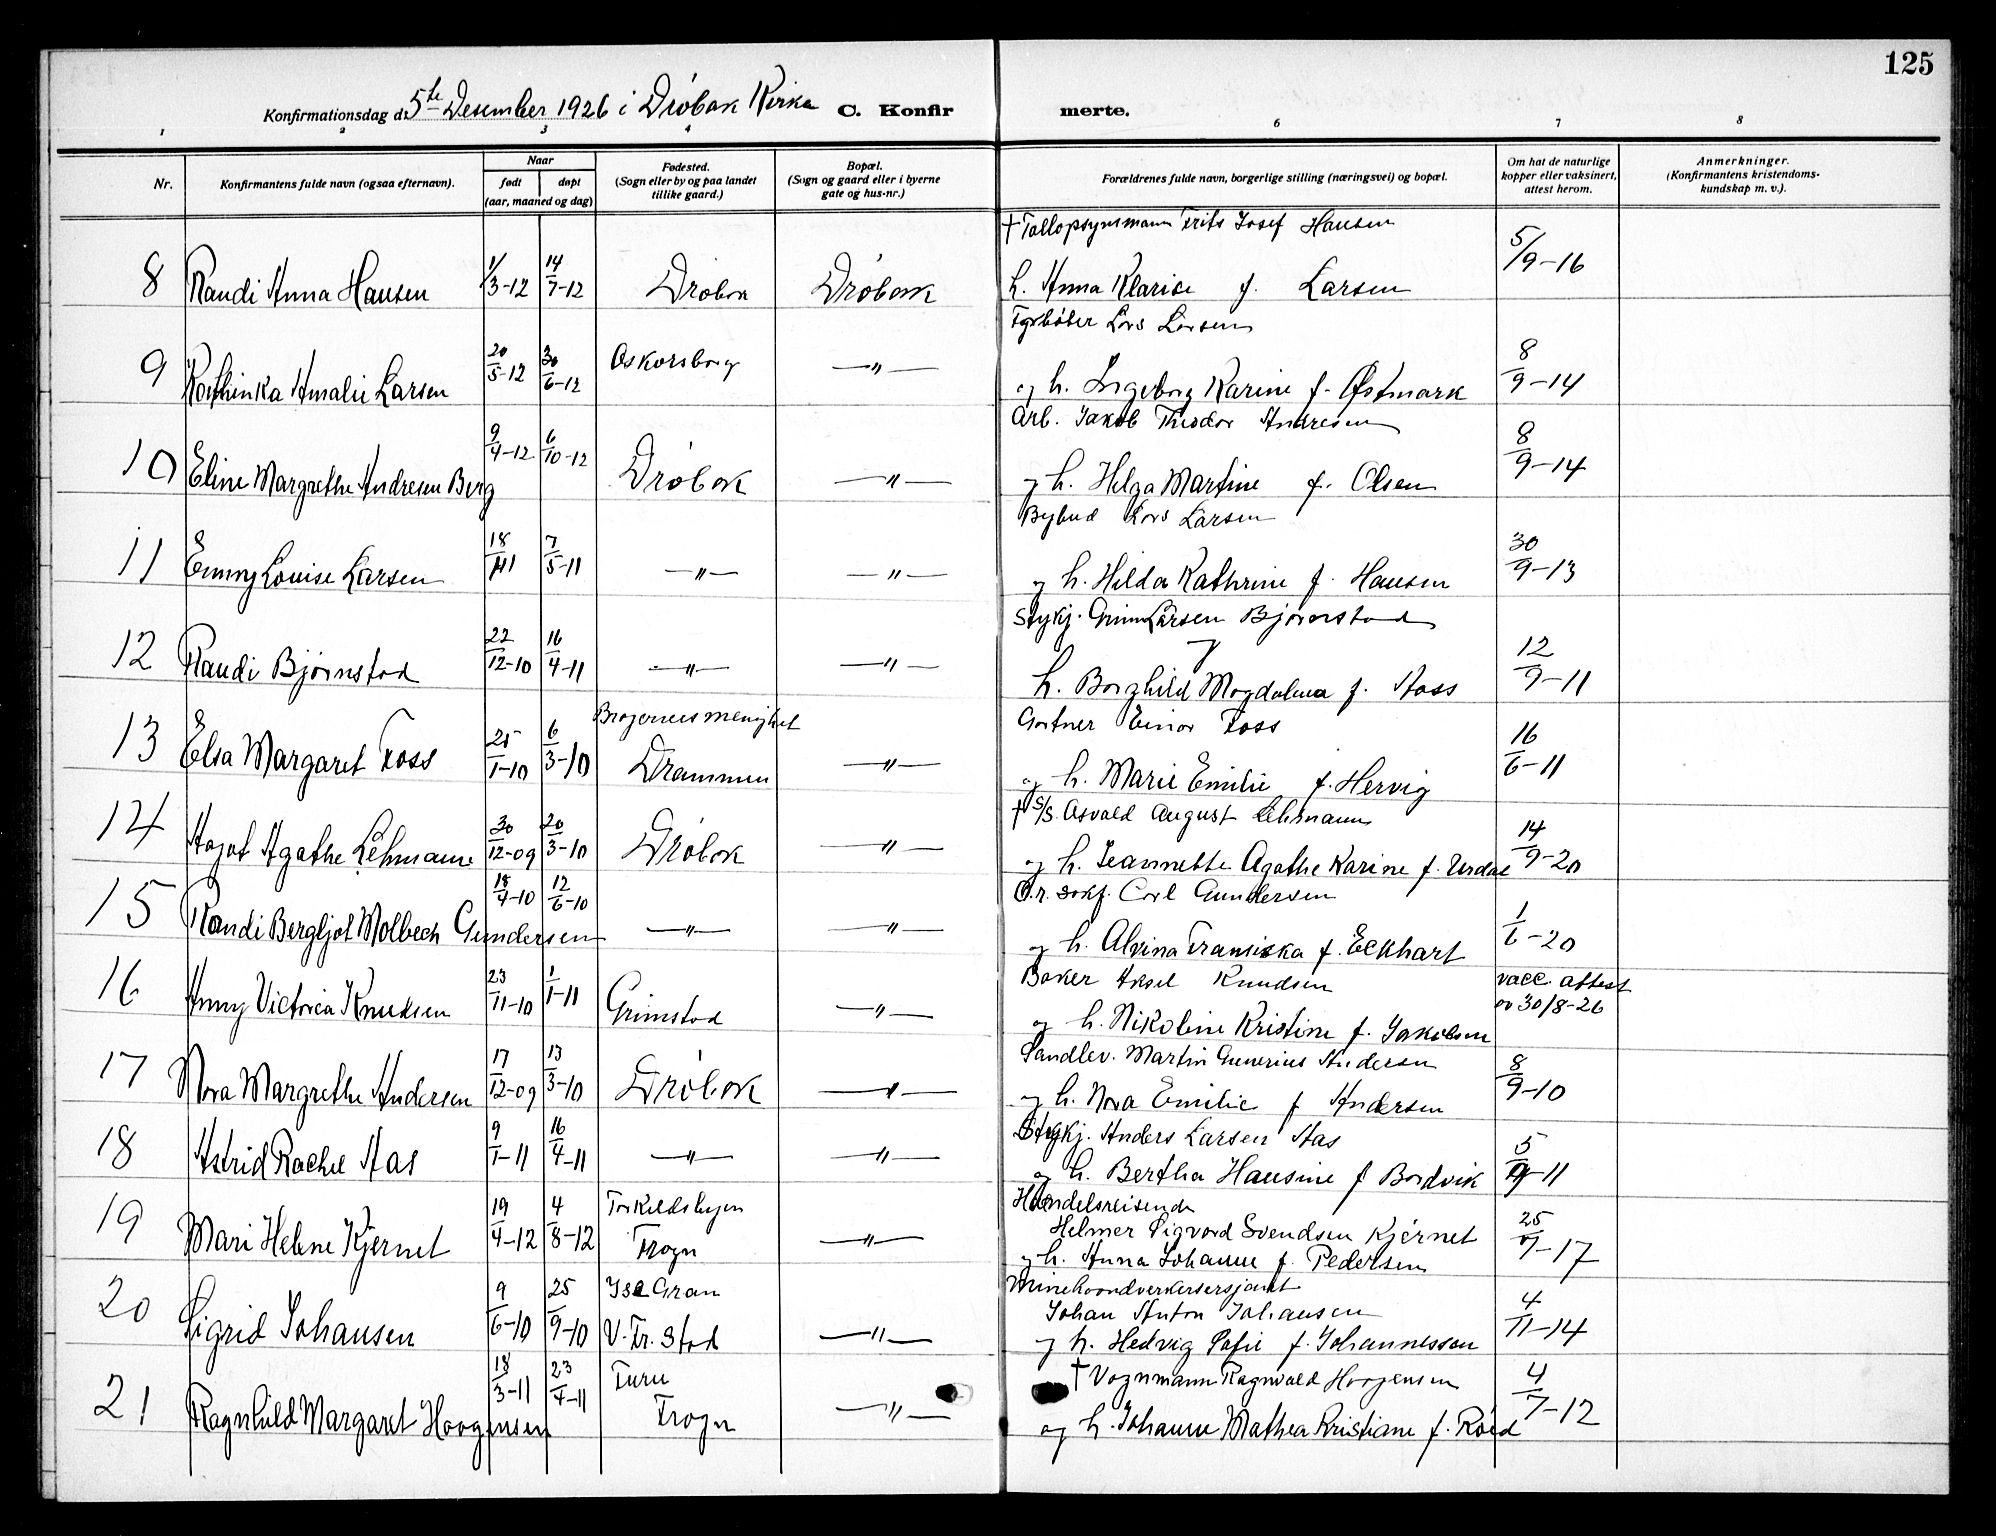 125
Konfirmationsdag d. 5te Desember 1926 i Drøbak Kirke C. Konfirmerte.
1 2 3 4 6 7 8
Nr. Konfirmantens fulde navn (ogsaa efternavn). Naar født døpt (aar, maaned og dag) Fødested. (Sogn eller by og paa landet tillike gaard.) Bopæl. (Sogn og gaard eller i byerne gate og hus-nr.) Forældrenes fulde navn, borgerlige stilling (næringsvei) og bopæl. Om hat de naturlige kopper eller vaksinert, attest herom. Anmerkninger. (Konfirmantens kristendoms-kundskap m. v.).
† Tallopsynsmann Frits Josef Hansen
8 Randi Anna Hansen 1/3-12 14/7-12 Drøbak Drøbak h. Anna Klarise f. Larsen 5/9-16
Fyrbøter Lars Larsen
9 Kathinka Amalie Larsen 20/5-12 30/6-12 Oskarsborg —"— og h. Ingeborg Karine f. Østmark 8/9-14
Arb. Jakob Theodor Andresen
10 Eline Margrethe Andresen Berg 9/4-12 6/10-12 Drøbak —"— og h. Helga Martine f. Olsen 8/9-14
Bybud Lars Larsen
11 Emmy Louise Larsen 18/1-11 7/5-11 —"— —"— og h. Hilda Kathrine f. Hansen 30/9-13
Stykj. Larsen Bjørnstad
12 Randi Bjørnstad 22/12-10 16/4-11 —"— —"— og h. Borghild Magdalena f. Aass 12/9-11
Gartner Einar Foss
13 Elsa Margaret Foss 25/1-10 6/3-10 Bragernes menighet Drammen —"— og h. Marie Emilie f. Hervig 16/6-11
† S/S. Asvald August Lehmann
14 Aagot Agathe Lehmann 30/12-09 20/3-10 Drøbak —"— og h. Jeannette Agathe Karine f. Urdal 14/9-20
O.r. sakf. Carl Gundersen
15 Randi Bergljot Molbech Gundersen 18/4-10 12/6-10 —"— —"— og h. Alvina Fransiska f. Eckhart 1/6-20
Baker Aksel Knudsen
16 Anny Victoria Knudsen 23/11-10 1/1-11 Grimstad —"— og h. Nikoline Kristine f. Jakobsen vacc. attest av 30/8-26
Sandlev. Martin Gunerius Andersen
17 Nora Margrethe Andersen 17/12-09 13/3-10 Drøbak —"— og h. Nora Emilie f Andersen 8/9-10
Stykj. Anders Larsen Aas
18 Astrid Rachel Aas 9/1-11 16/4-11 —"— —"— og h. Bertha Hansine f Bordvik 5/9-11
Handelsreisende
19 Mari Helene Kjernet 19/4-12 4/8-12 Torkildshøgen Frogn —"— Helmer Sigvard Svendsen Kjernet 25/7-17
og h. Anna Johanne f. Pedersen
Minehaandverkersersjant
20 Sigrid Johansen 9/6-10 25/9-10 Isegran V. Fr. Stad —"— Johan Anton Johansen 4/11-14
og h. Hedvig Sofie f. Johannesson
† Vognmann Ragnvald Haagensen
21 Ragnhild Margaret Haagensen 18/3-11 23/4-11 Furu Frogn —"— og h. Johanne Mathea Kristiane f. Røed 4/7-12